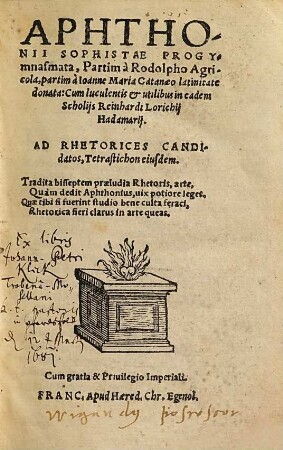 APHTHO-
NII SOPHISTAE PROGY
mnasmata, Partim à Rodolpho Agri
cola, partim à Ioanne Maria Catanæo latinitate
donata: Cum luculentis & utilibus in eadem
Scholijs Reinhardi Lorichij
Hadamarij.
AD RHETORICES CANDI-
datos, Tetrastichon eiusdem.
Tradita bisseptem præludia Rhetoris, arte,
Quàm dedit Aphthonius, uix potiore leges.
Quæ tibi si fuerint studio bene culta feraci,
Rhetorica fieri clarus in arte queas.
Ex libris
Johann-Petri
Cum gratia & Priuilegio Imperiali.
FRANC. Apud Hæred. Chr. Egenol.